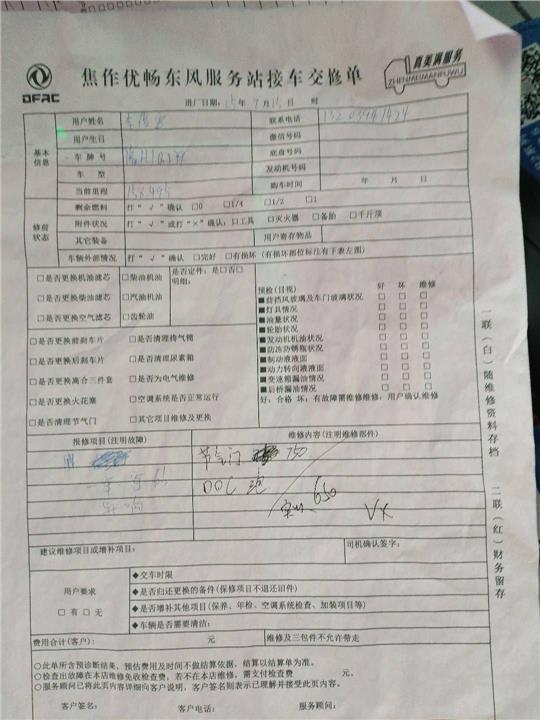 DFAC
焦作优畅东风服务站接车交修单
真美满服务
ZHENMEIMANFUWU
进厂日期：15年7月15日 时
基本信息
用户姓名 联系电话
用户生日 微信号码
车牌号 底盘号码
车型 发动机号码
当前里程 158495 购车时间 年 月 日
修前状态
剩余燃料 打“√”确认 □0 □1/4 □1/2 □1
附件状况 打“√”或打“×”确认：□工具 □灭火器 □备胎 □千斤顶
其它装备 用户寄存物品
车辆外部情况 打“√”确认 □完好 □有损坏（有损坏部位标注有下表左图）
□是否更换机油滤芯 □柴油机油 是否定件：是□否□
明细：
□是否更换柴油滤芯 □汽油机油
□是否更换空气滤芯 □齿轮油
□是否更换前刹车片 □是否清理排气筒
□是否更换后刹车片 □是否清理尿素箱
□是否更换离合三件套 □是否为电气维修
□是否更换火花塞 □空调系统是否正常运行
□是否清理节气门 □其它项目维修及更换
预检(目视) 好 坏 维修
■前挡风玻璃及车门玻璃状况 □ □ □
■灯具情况 □ □ □
■油量状况 □ □ □
■轮胎状况 □ □ □
■发动机机油状况 □ □ □
■防冻防锈瓶状况 □ □ □
■制动液液面 □ □ □
■动力转向液液面 □ □ □
■变速箱漏油情况 □ □ □
■后桥漏油情况 □ □ □
好：合格 坏：有故障需维修维修：用户确认维修
报修项目(注明故障) 维修内容(注明维修部件)
节气门 750
DOC
650
建议维修项目或增补项目： 司机确认签字：
用户要求
□有 □无
◆交车时限
◆是否归还更换的备件(保修项目不退还旧件)
◆是否增补其他项目(保养、年检、空调系统检查、加装项目等)
◆车辆是否需要清洁：
费用合计(客户)： 元 维修及三包件不允许带走
○此单所含预诊断结果，预估费用及时间不做结算依据，结算以结算单为准。
○检查出故障在本店维修免收检查费，若不在本店维修，需支付检查费 元。
○服务顾问已将此页内容详细向客户说明，客户签名则表示已理解并接受此页内容。
客户签名： 客户电话： 服务顾问：
一联（白）随维修资料存档
二联（红）财务留存